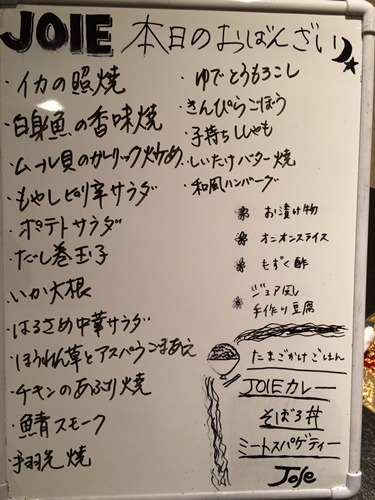 JOIE 本日のおばんざい
・イカの照焼
・白身魚の香味焼
・ムール貝のガーリック炒め
・もやしピリ辛サラダ
・ポテトサラダ
・だし巻玉子
・いか大根
・はるさめ中華サラダ
・ほうれん草とアスパラごまあえ
・チキンのあぶり焼
・鯖スモーク
・手羽先焼
・ゆでとうもろこし
・きんぴらごぼう
・子持ちししゃも
・しいたけバター焼
・和風ハンバーグ
お漬け物
オニオンスライス
もずく酢
ジョア風
手作り豆腐
たまごかけごはん
JOIEカレー
そぼろ丼
ミートスパゲティー
Joie